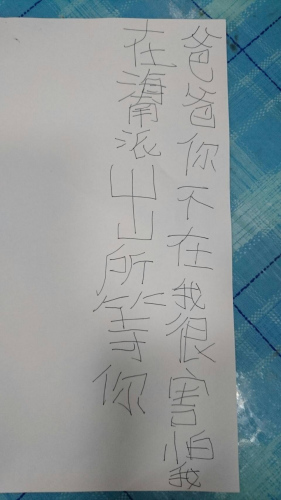 爸爸你不在我很害怕我
在海南派出所等你